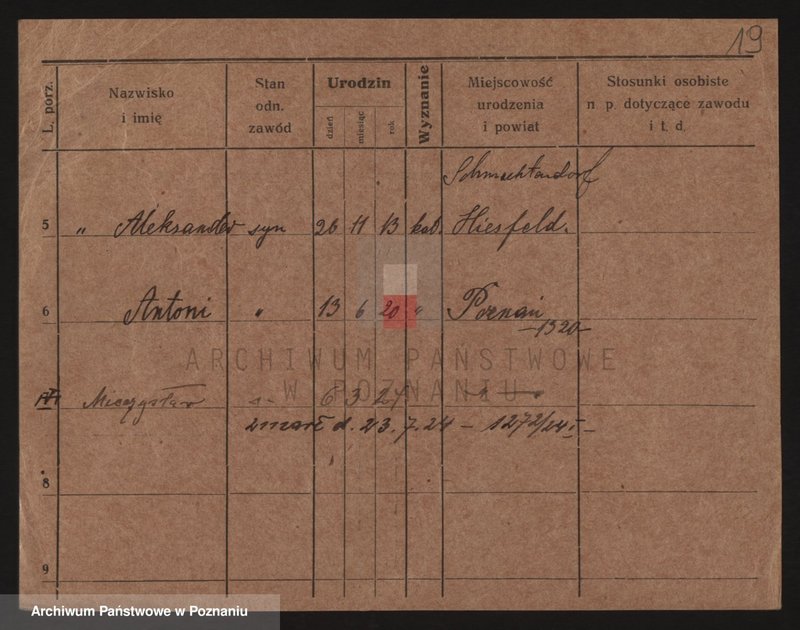 19
L. porz.
Nazwisko
i imię
Stan
odn.
zawód
Urodzin
dzień
miesiąc
rok
Wyznanie
Miejscowość
urodzenia
i powiat
Stosunki osobiste
n p. dotyczące zawodu
i t. d.
Schmachtendorf
5 " Aleksander syn 26 11 13 kat. Hiesfeld.
6 Antoni " 13 6 20 " Poznań
–1320–
ARCHIWUM PAŃSTWOWE
W POZNANIU
Mieczysław 6 3 24
zmarł d. 23.7.24 – 1272/24 I –
8
9
Archiwum Państwowe w Poznaniu